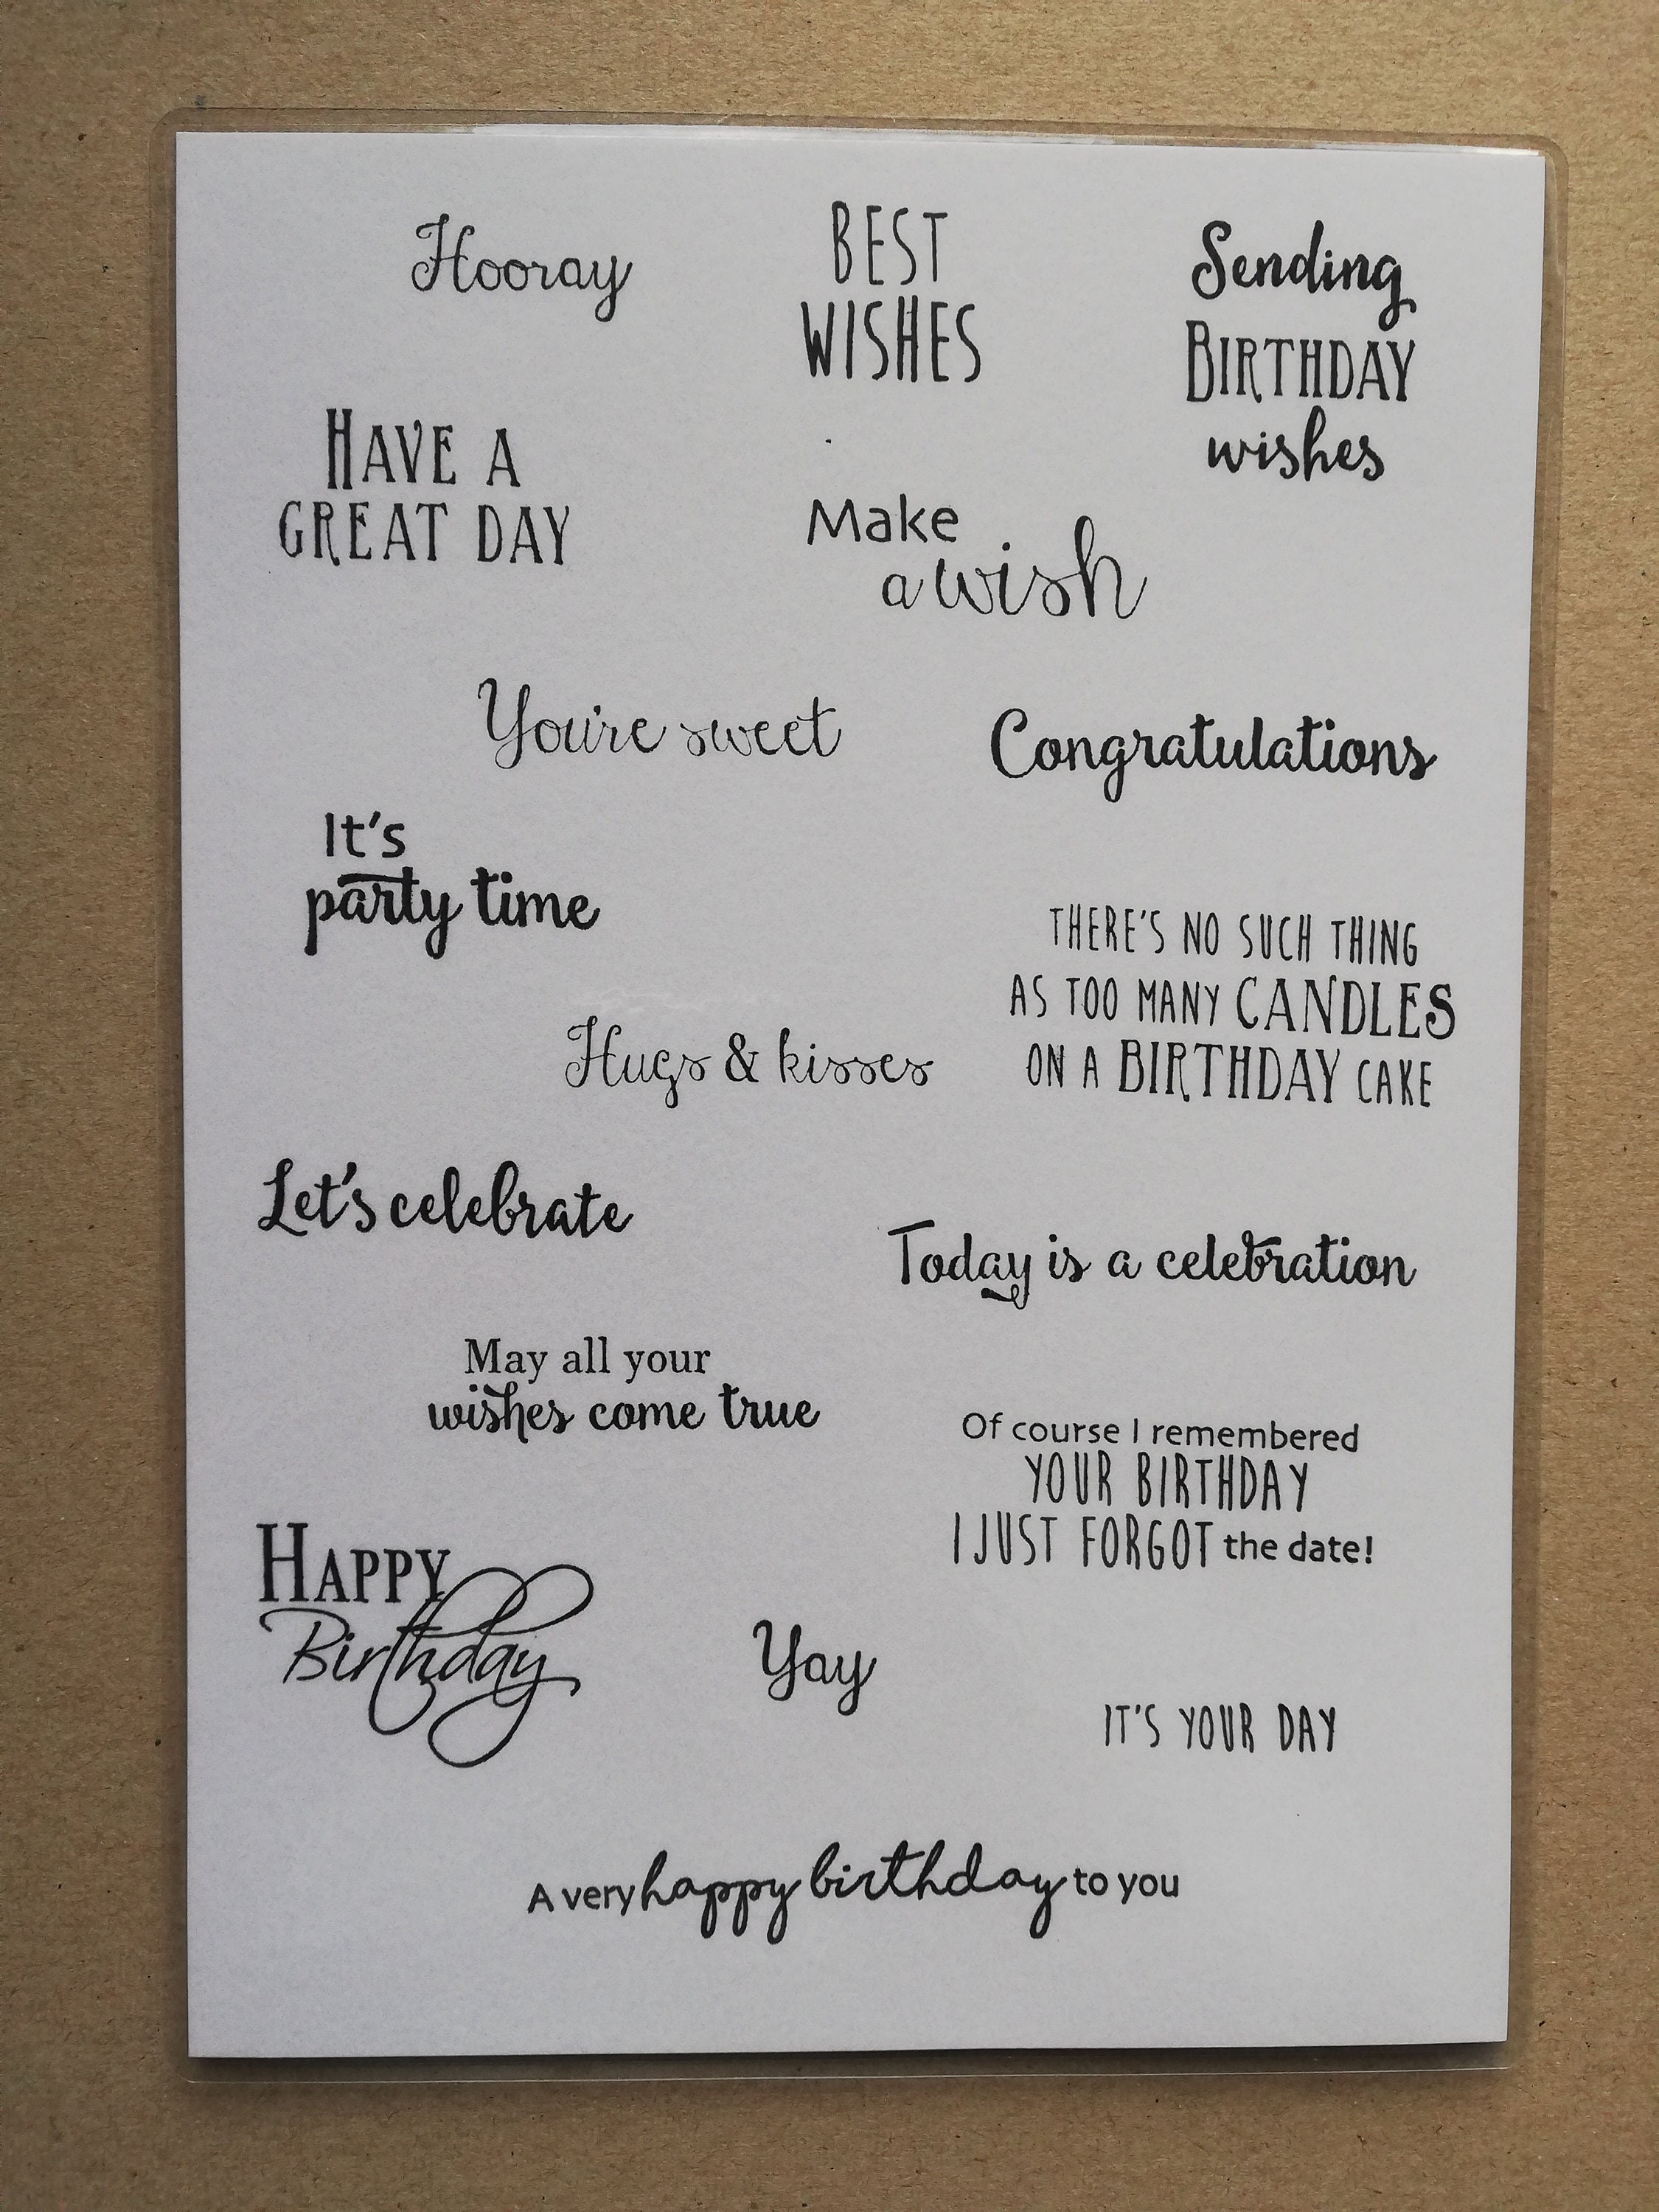 Hooray
BEST
WISHES
Sending
BIRTHDAY
wishes
HAVE A
GREAT DAY
Make
a wish
You're sweet
Congratulations
It's
party time
THERE'S NO SUCH THING
AS TOO MANY CANDLES
ON A BIRTHDAY CAKE
Hugs & kisses
Let's celebrate
Today is a celebration
May all your
wishes come true
Of course I remembered
YOUR BIRTHDAY
I JUST FORGOT the date!
HAPPY
Birthday
Yay
IT'S YOUR DAY
A very happy birthday to you